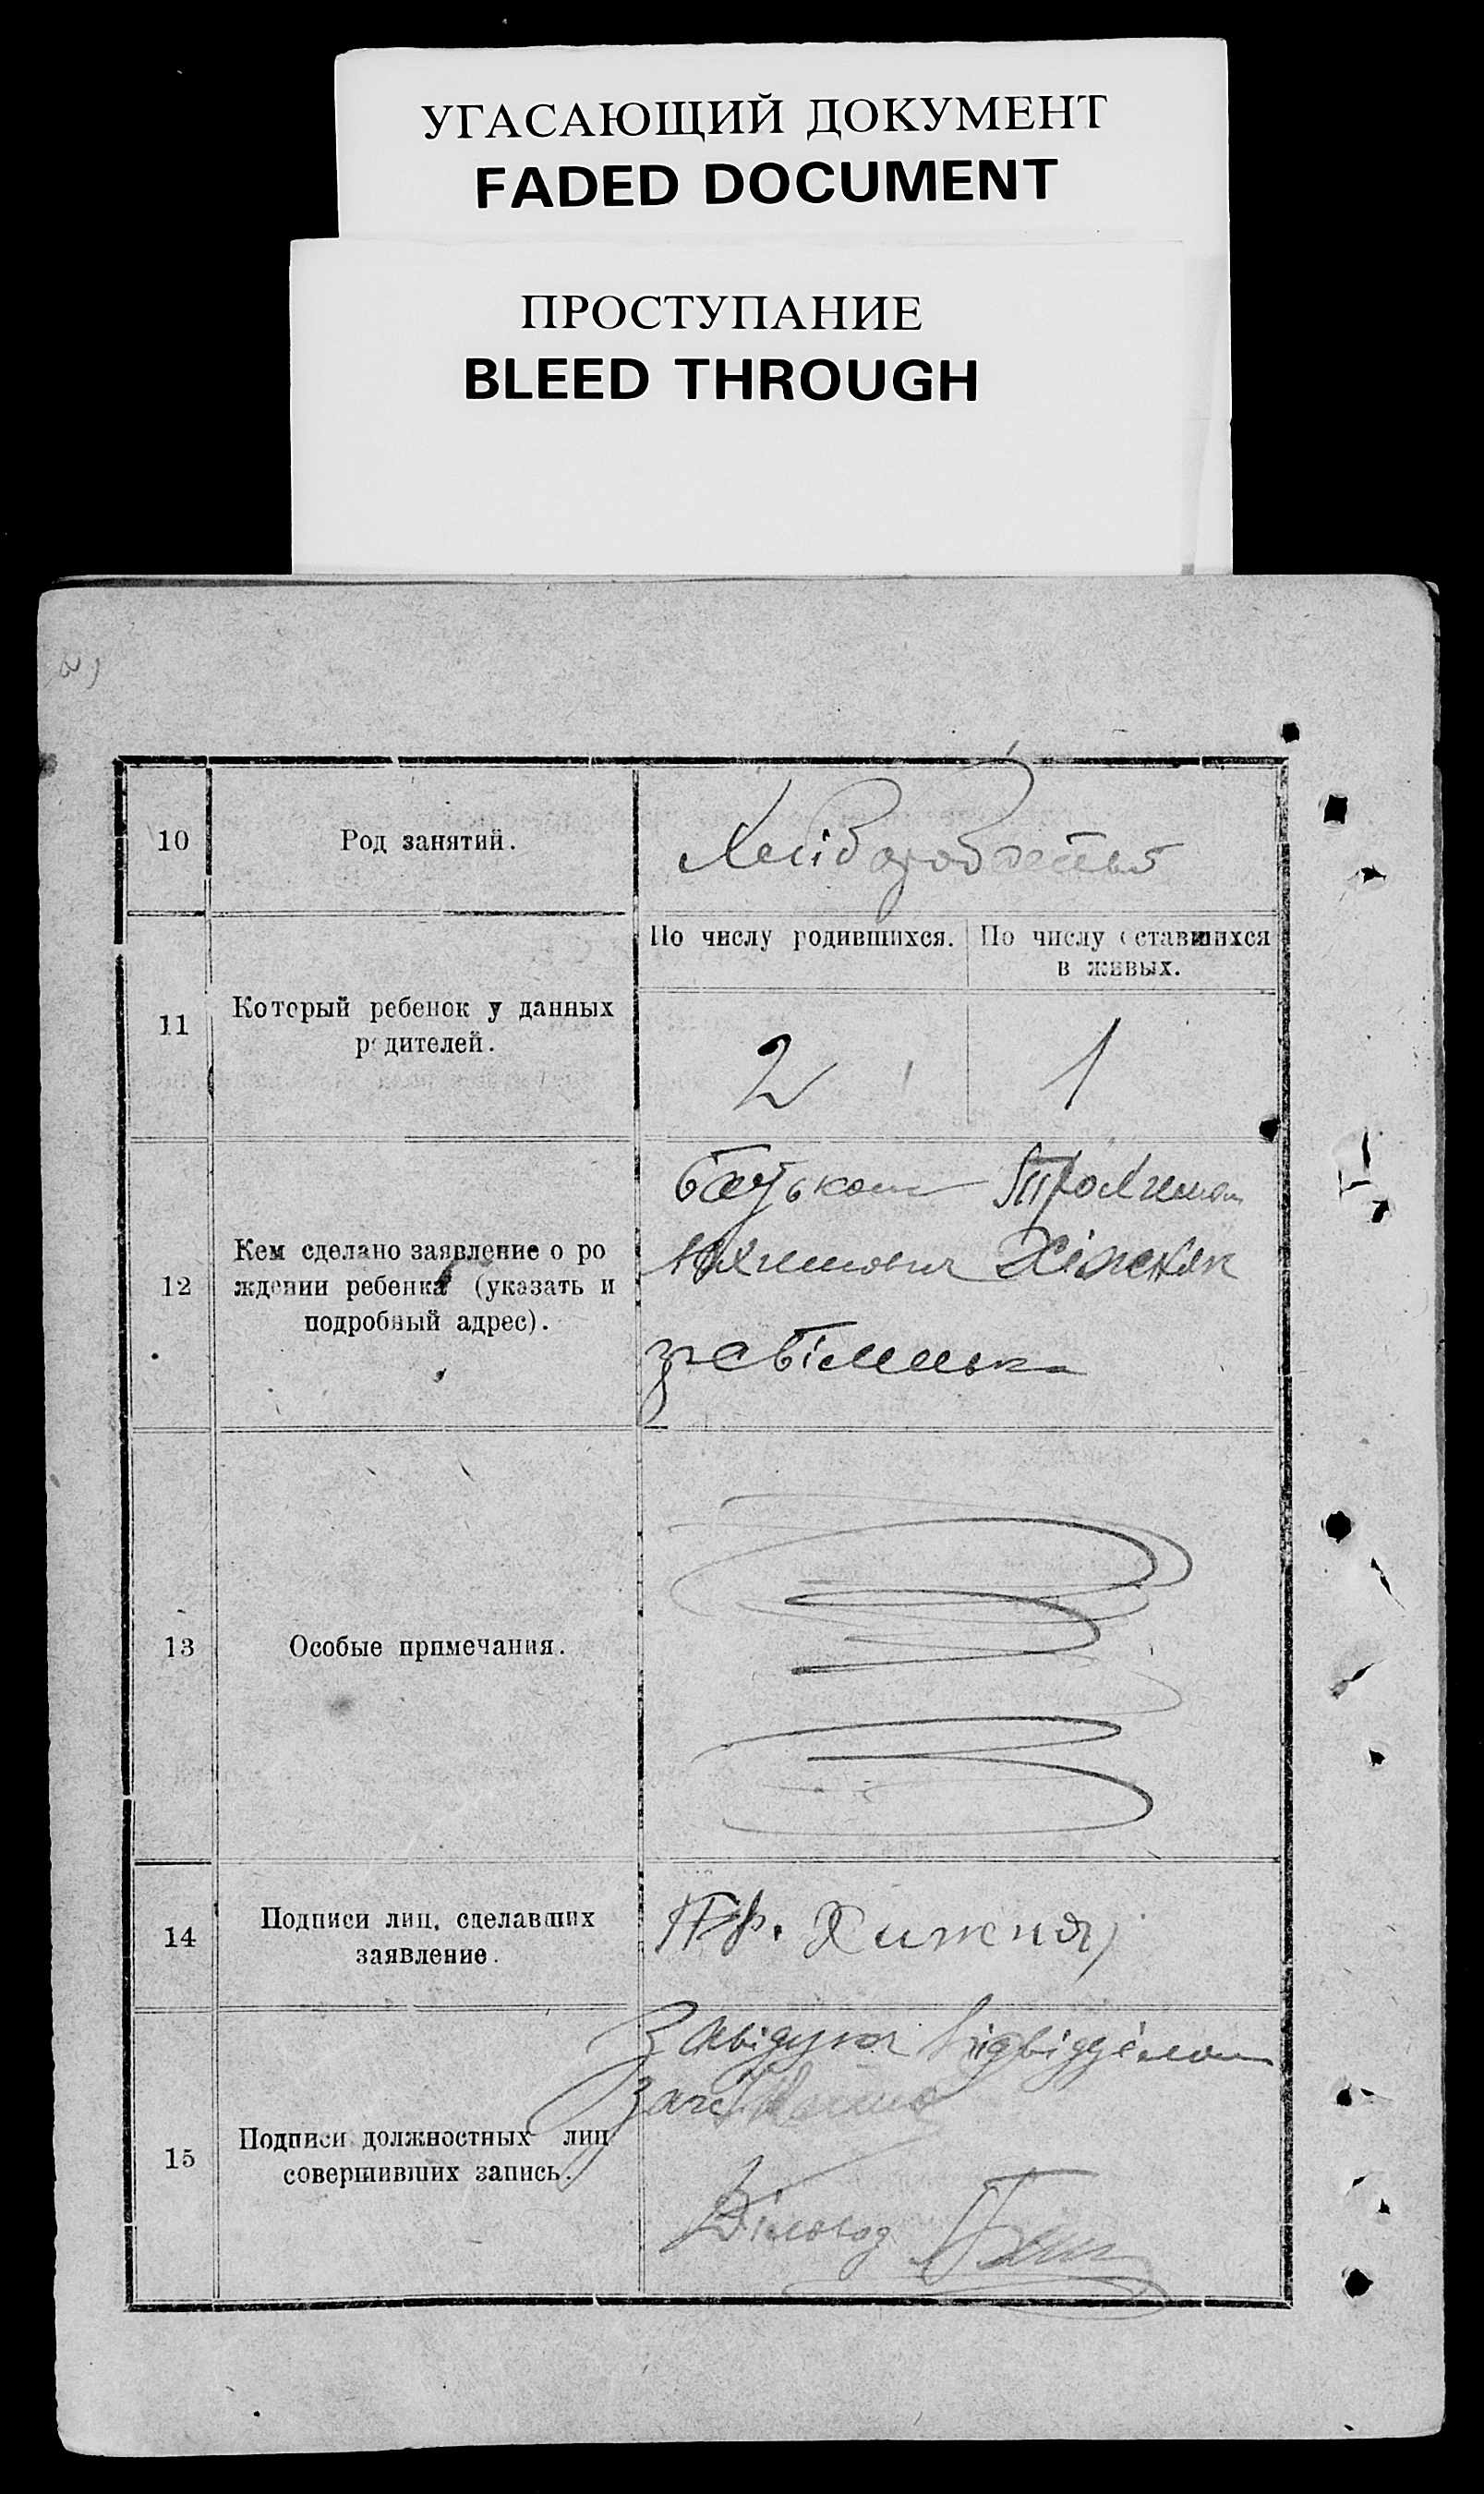 УГАСАЮЩИЙ ДОКУМЕНТ
FADED DOCUMENT
ПРОСТУПАНИЕ
BLEED THROUGH
10
Род занятий.
11
Который ребенок у данных
родителей.
По числу родившихся.
По числу оставшихся
в живых.
2
1
12
Кем сделано заявление о ро
ждении ребенка (указать и
подробный адрес).
батьком Трохимом
13
Особые примечания.
14
Подписи лиц, сделавших
заявление.
Хижняк
15
Подписи должностных лиц
совершивших запись.
Завідуюч підвідділом
Діловод